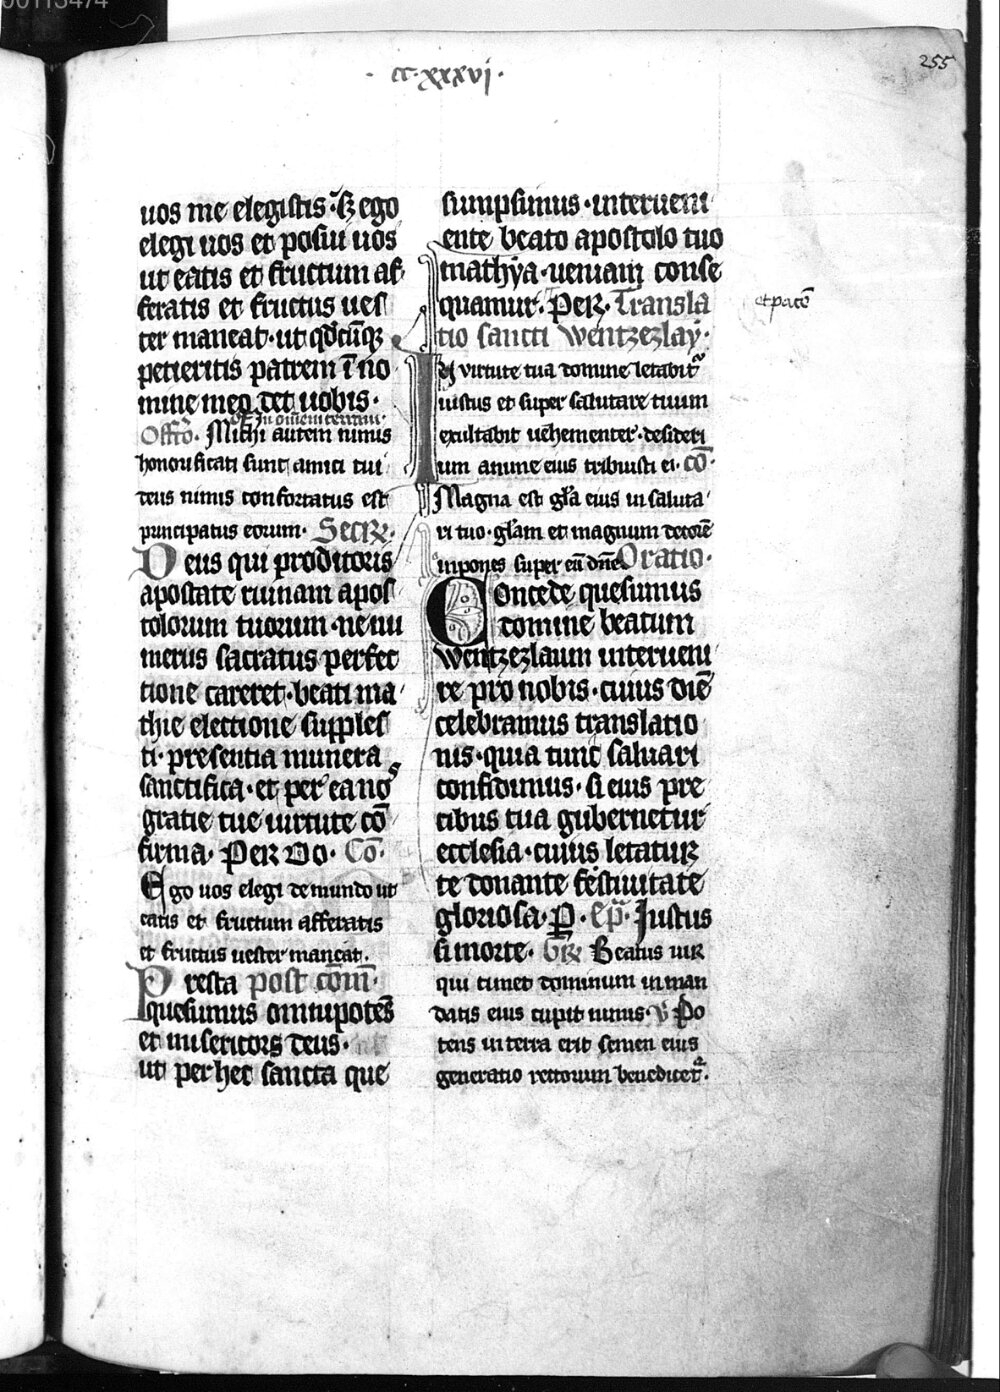 00113474
· cc·xxxvi·
255
uos me elegistis· Sꝫ ego
elegi uos et posui uos
ut eatis et fructum af
feratis et fructus ues
ter maneat· ut qd̄cūqꝫ
petieritis patrem ī no
mine meo det uobis·
In omnem terram·
Offr̄o· Michi autem nimis
honorificati sunt amici tui
deus nimis confortatus est
principatus eorum· Secrꝫ·
Deus qui proditoris
apostate ruinam apos
tolorum tuorum· ne nu
merus sacratus perfec
tione careret· beati ma
thie electione supples
ti· presentia munera
sanctifica· et per ea nos
gratie tue uirtute cō
firma· Per Do· Cō·
Ego uos elegi de mundo ut
eatis et fructum afferatis
et fructus uester maneat·
Presta post cōm̄·
quesumus omnipotēs
et misericors deus·
ut per hec sancta que
sumpsimus· interueni
ente beato apostolo tuo
mathya· ueniam conse
quamur· Per· Transla
et pacē
tio sancti Wentzezlay·
In uirtute tua domine letabitr̄
iustus et super salutare tuum
exultabit uehementer· desideri
um anime eius tribuisti ei· cō
Magna est glā eius in saluta
ri tuo· glam et magnum decorē
inpones super eū dn̄e Oratio·
Concede quesumus
domine beatum
Wentzezlaum interueni
re pro nobis· cuius diē
celebramus translatio
nis· quia tunc saluari
confidimus· si eius pre
cibus tua gubernetur
ecclesia· cuius letatur
te donante festiuitate
gloriosa· P̄· ep̄la· Justus
si morte· Gr̄· Beatus uir
qui timet dominum in man
datis eius cupit nimis· V̄ Po
tens in terra erit semen eius
generatio rectorum benedicetr̄·